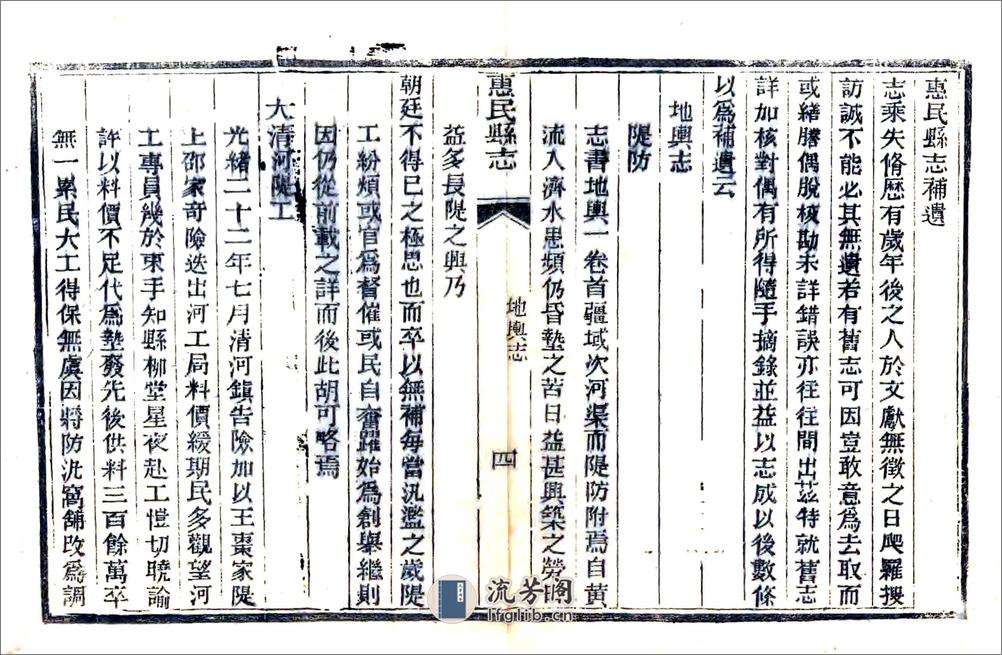 惠民縣志補遺
志乘失脩歷有歲年後之人於文獻無徵之日爬羅搜
訪誠不能必其無遺若有舊志可因豈敢意為去取而
或繕謄偶脫核勘未詳錯誤亦往往間出茲特就舊志
詳加核對偶有所得隨手摘錄並益以志成以後數條
以為補遺云
地輿志
隄防
志書地輿一卷首疆域次河渠而隄防附焉自黃
流入濟水患頻仍昏墊之苦日益甚興築之勞
益多長隄之興乃
惠民縣志
地輿志
四
朝廷不得已之極思也而卒以無補每當汎濫之歲隄
工紛煩或官為督催或民自奮躍始為創舉繼則
因仍從前載之詳而後此胡可略焉
大清河隄工
光緒二十二年七月清河鎮告險加以王棗家隄
上邵家奇險迭出河工局料價緩期民多觀望河
工專員幾於束手知縣柳堂星夜赴工愷切曉諭
許以料價不足代為墊發先後供料三百餘萬卒
無一累民大工得保無虞因將防汛窩舖改為調
流芳阁
lfglib.cn